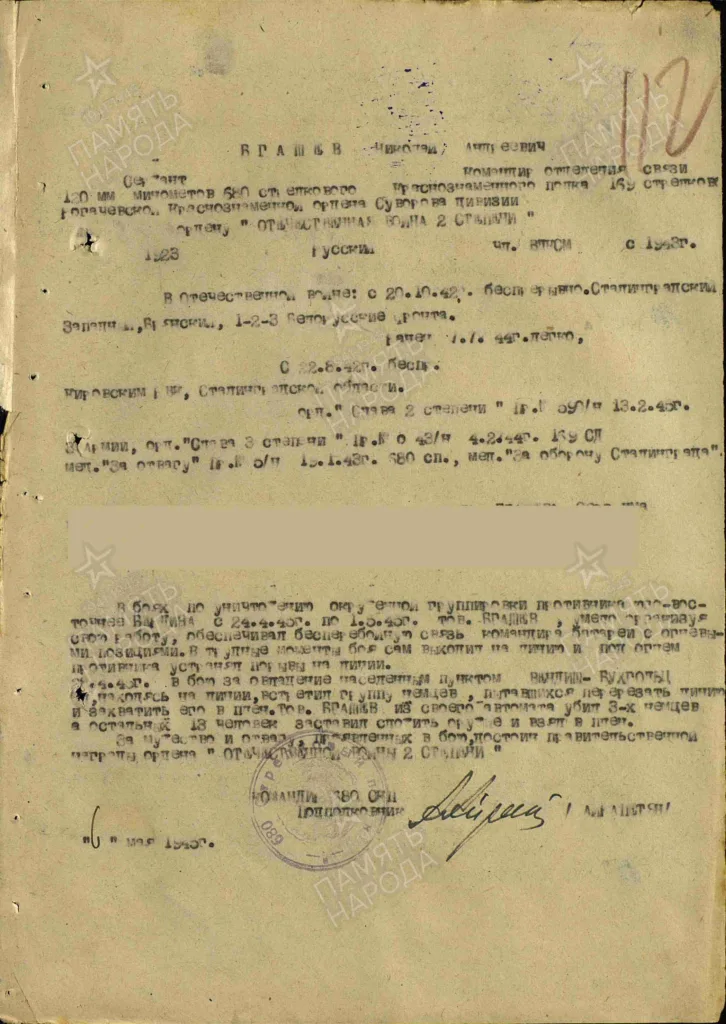 112
БРАШЕВ Николай Андреевич
Сержант командир отделения связи
120 мм минометов 680 стрелкового Краснознаменного полка 169 стрелков
Рогачевской Краснознаменной ордена Суворова дивизии
ордену " ОТЕЧЕСТВЕННАЯ ВОЙНА 2 СТЕПЕНИ "
1923 Русский чл. ВЛКСМ с 1943г.
В Отечественной войне: с 20.10.42г. беспрерывно.Сталинградский
Западный,Брянский, 1-2-3 Белорусские фронта.
Ранен 7.7. 44г.легко,
С 22.8.42г. беспр.
Кировским РВК, Сталинградской области.
орд." Слава 2 степени " Пр.№ 590/н 13.2.45г.
3 Армии, орд."Слава 3 степени " Пр.№ 43/н 4.2.44г. 169 СД
мед."За отвагу" Пр.№ 5/н 15.1.43г. 680 сп., мед."За оборону Сталинграда".
В боях по уничтожению окруженной группировки противника юго-вос-
точнее БЕРЛИНА с 24.4.45г. по 1.5.45г. тов. БРАШЕВ , умело организуя
свою работу, обеспечивал бесперебойную связь командира батареи с огневы-
ми позициями. В трудные моменты боя сам выходил на линию и под огнем
противника устранял порывы на линии.
.4.45г. в бою за овладение населенным пунктом ВЕНДИШ- БУХГОЛЬЦ
находясь на линии,встретил группу немцев , пытавшихся перерезать линию
и захватить его в плен.Тов. БРАШЕВ из своего автомата убил 3-х немцев
а остальных 13 человек заставил сложить оружие и взял в плен.
За мужество и отвагу, проявленных в бою,достоин правительственной
награды ордена " ОТЕЧЕСТВЕННОЙ ВОЙНЫ 2 СТЕПЕНИ "
КОМАНДИР 680 СКП
Подполковник / АЙРАПЕТЯН/
"6 " мая 1945г.
680
ПАМЯТЬ НАРОДА